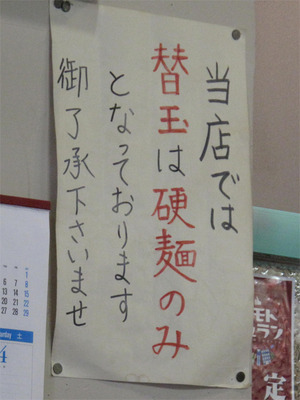 当店では
替玉は硬麺のみ
となっております
御了承下さいませ
土
1
6 7 8
13 14 15
20 21 22
27 28 29
定